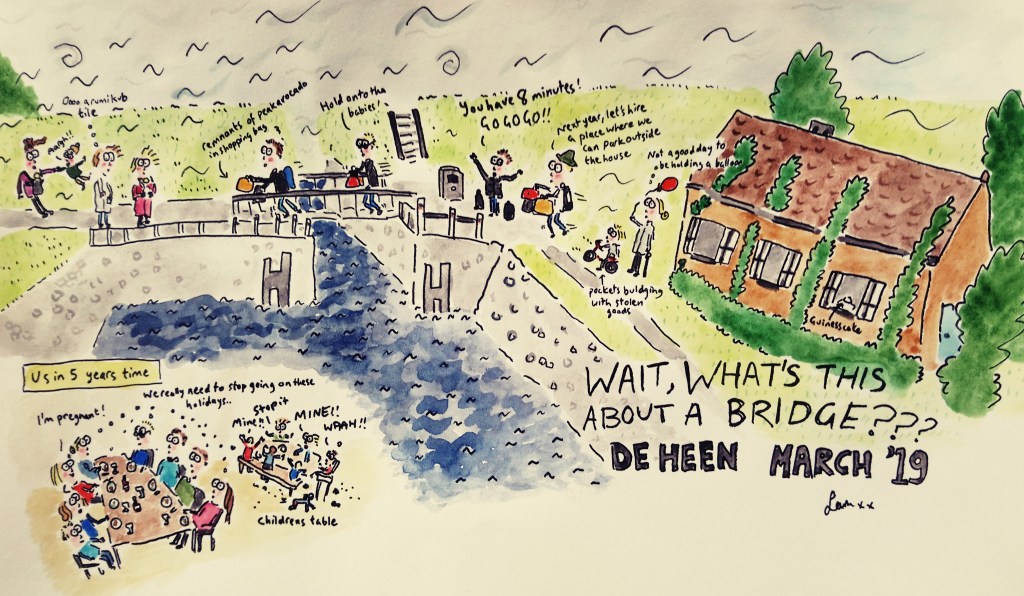 Oooo a rumikub
tile
Aargh!
remnants of peakaroendo
in shopping bag
Hold onto the
babies!
You have 8 minutes!
GO GO GO!!
Next year, let's hire
a place where we
can park outside
the house
Not a good day to
be holding a balloon
pockets buldging
with stolen
goods
Guinesscake
H
H
Us in 5 years time
I'm pregnant!
We really need to stop going on these
holidays..
Stop it
Mine!!
MINE!!
WAAH!!
Childrens table
WAIT, WHAT'S THIS
ABOUT A BRIDGE???
DE HEEN MARCH '19